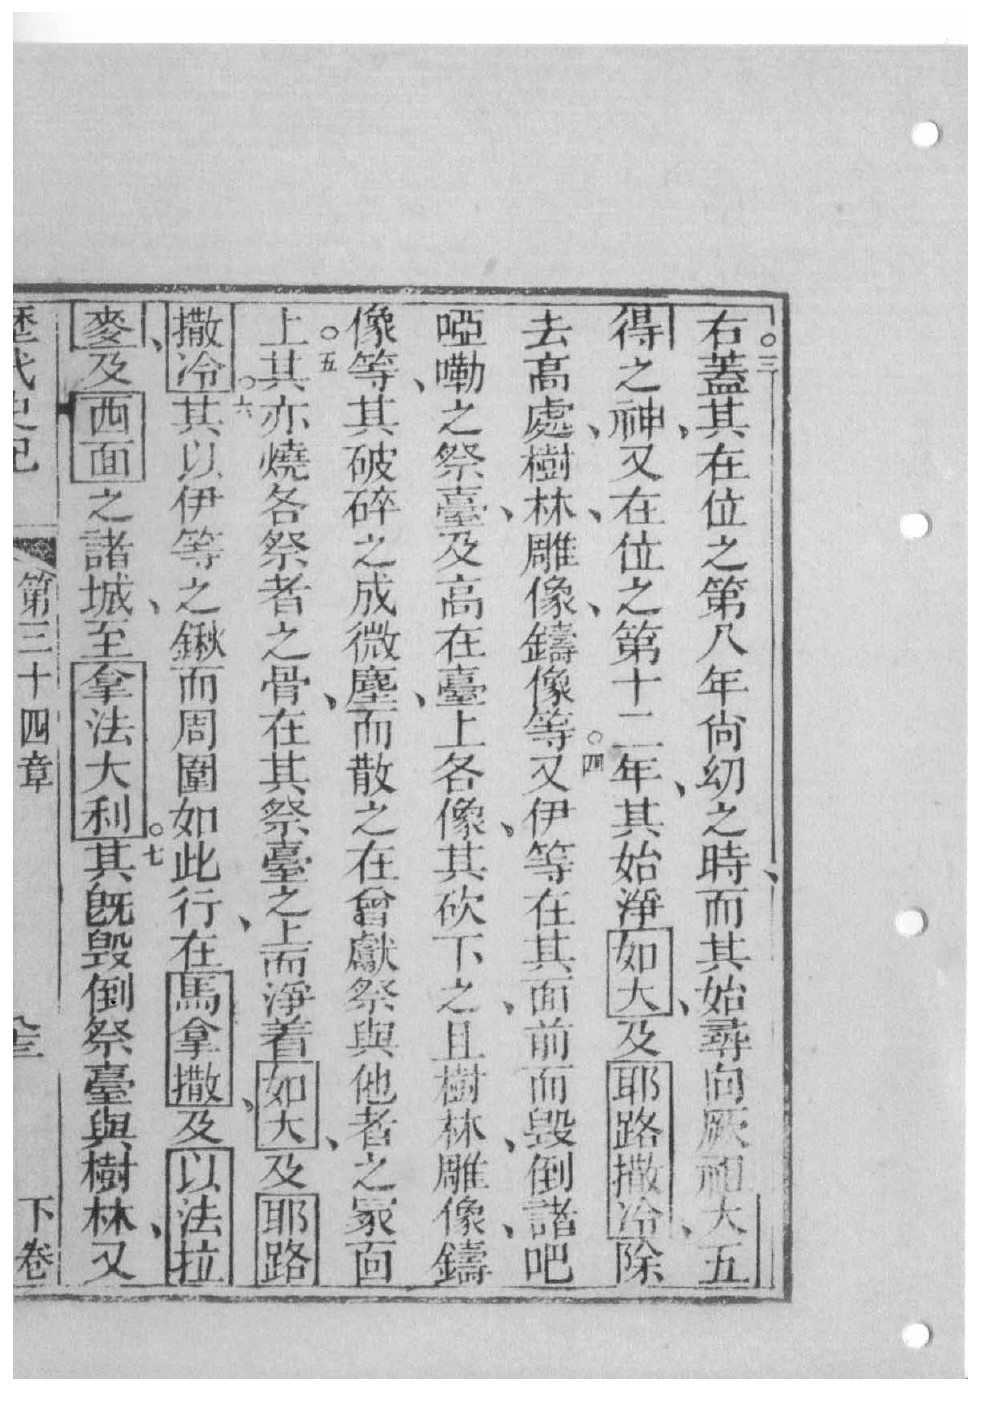 右○三蓋其在位之第八年尙幼之時、而其始尋向厥祖大五
得之神、又在位之第十二年、其始淨如大、及耶路撒冷、除
去高處、樹林、雕像、鑄像等○四又伊等在其面前而毀倒諸吧
啞嘞之祭臺、及高在臺上各像、其砍下之、且樹林、雕像、鑄
像等、其破碎之成微塵、而散之在曾獻祭與他者之冡面
上○五其亦燒各祭者之骨、在其祭臺之上而淨着如大、及耶路
撒冷○六其以伊等之鍬而周圍如此行、在馬拿撒、及以法拉
麥、及西面之諸城、至拿法大利○七其旣毀倒祭臺與樹林、又
歷代史記 第三十四章 下卷